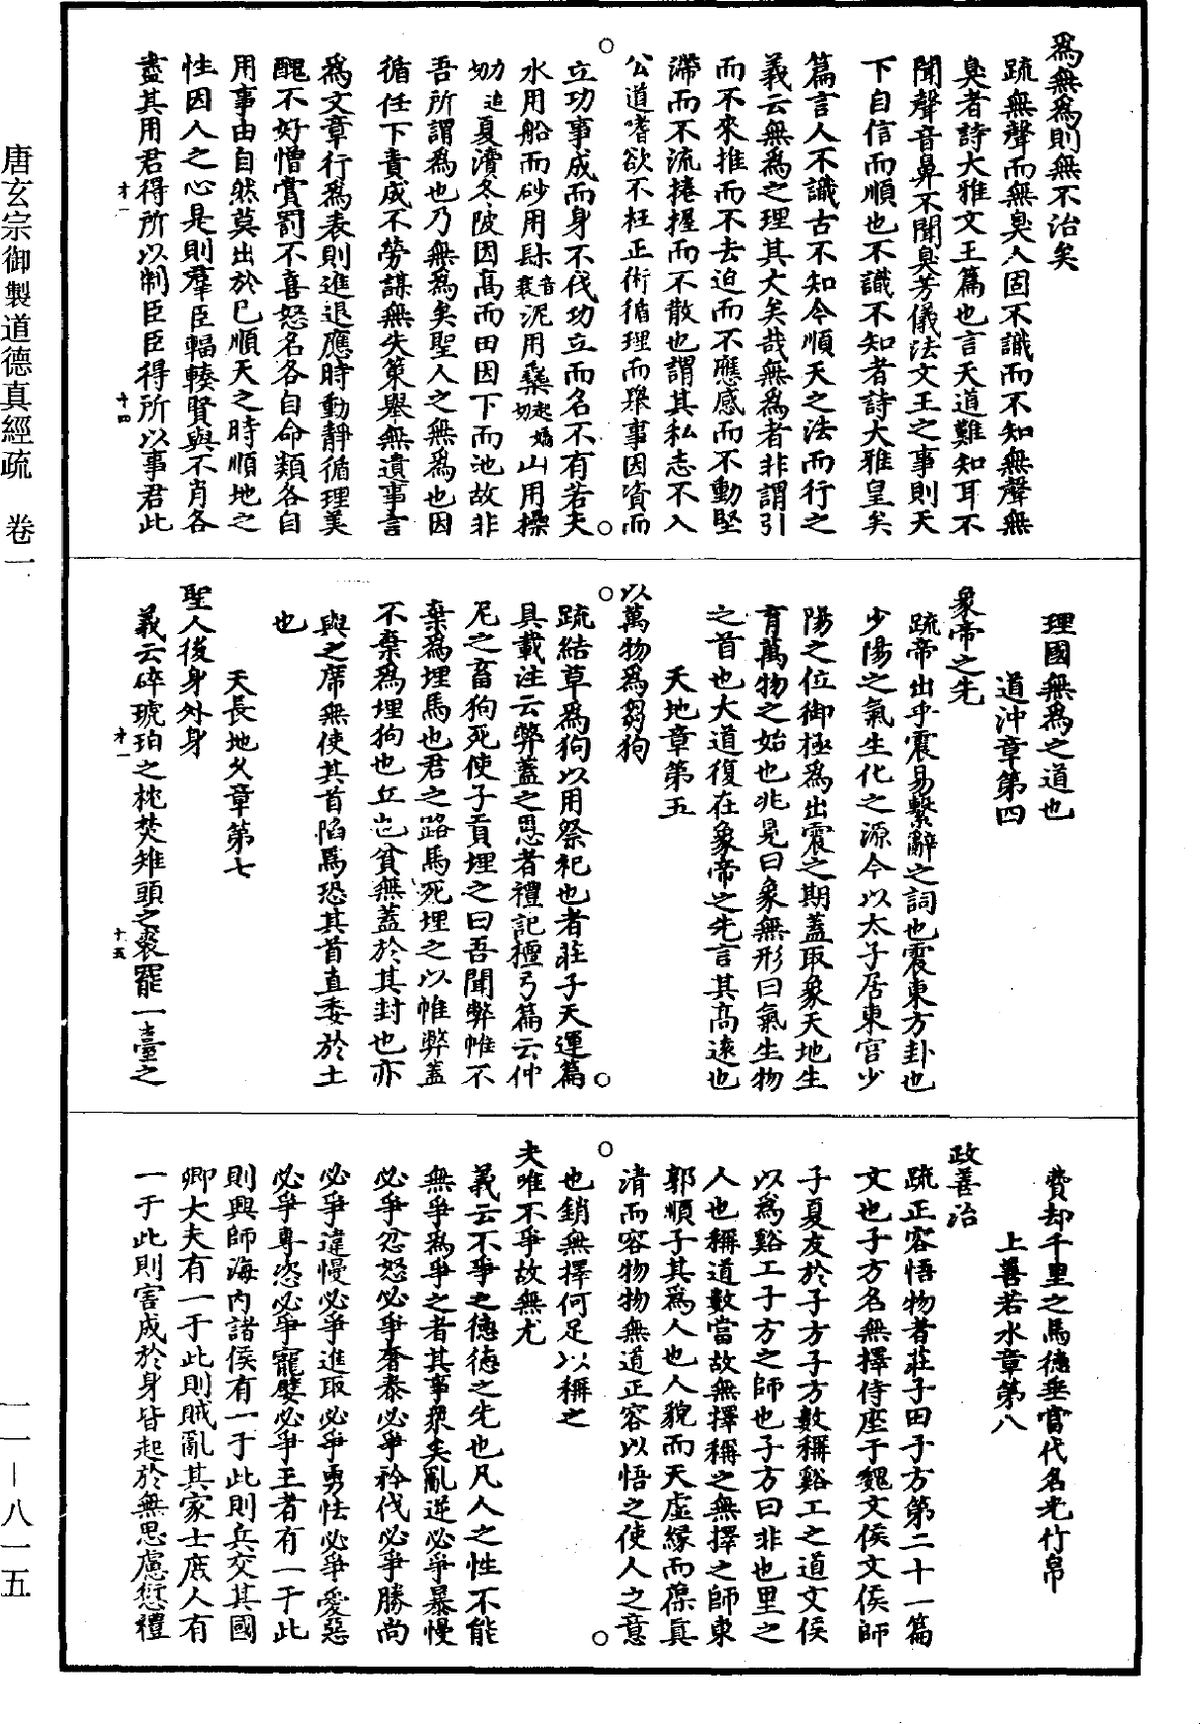 為無為則無不治矣
疏無聲而無臭人固不識而不知無聲無
臭者詩大雅文王篇也言天道難知耳不
聞聲音鼻不聞臭芳儀法文王之事則天
下自信而順也不識不知者詩大雅皇矣
篇言人不識古不知今順天之法而行之
義云無為之理其大矣哉無為者非謂引
而不來推而不去迫而不應感而不動堅
滯而不流捲握而不散也謂其私志不入
公道嗜欲不枉正術循理而舉事因資而
立功事成而身不伐功立而名不有若夫
水用船而砂用𨽥音裊泥用蘽起嬌切山用樏
力追切夏瀆冬陂因高而田因下而池故非
吾所謂為也乃無為矣聖人之無為也因
循任下責成不勞謀無失策舉無遺事言
為文章行為表則進退應時動靜循理美
醜不好憎賞罰不喜怒名各自命類各自
用事由自然莫出於已順天之時順地之
性因人之心是則羣臣輻輳賢與不肖各
盡其用君得所以制臣臣得所以事君此
才一
十四
理國無為之道也
道沖章第四
象帝之先
疏帝出乎震易繫辭之詞也震東方卦也
少陽之氣生化之源今以太子居東宮少
陽之位御極為出震之期蓋取象天地生
育萬物之始也兆見曰象無形曰氣生物
之首也大道復在象帝之先言其高遠也
天地章第五
以萬物為芻狗
疏結草為狗以用祭祀也者莊子天運篇
具載注云弊蓋之恩者禮記檀弓篇云仲
尼之畜狗死使子貢埋之曰吾聞弊帷不
棄為埋馬也君之路馬死埋之以帷弊蓋
不棄為埋狗也丘也貧無蓋於其封也亦
與之席無使其首陷焉恐其首直委於土
也
天長地久章第七
聖人後身外身
義云碎琥珀之枕焚雉頭之裘罷一臺之
才一
十五
費却千里之馬德垂當代名光竹帛
上善若水章第八
政善治
疏正容悟物者莊子田子方第二十一篇
文也子方名無擇侍座于魏文侯文侯師
子夏友於子方子方數稱谿工之道文侯
以為谿工子方之師也子方曰非也里之
人也稱道數當故無擇稱之無擇之師東
郭順子其為人也人貌而天虛緣而葆真
清而容物物無道正容以悟之使人之意
也銷無擇何足以稱之
夫唯不爭故無尤
義云不爭之德德之先也凡人之性不能
無爭為爭之者其事眾矣亂逆必爭暴慢
必爭忿怒必爭奢泰必爭矜伐必爭勝尚
必爭違愎必爭進取必爭勇怯必爭愛惡
必爭專恣必爭寵嬖必爭王者有一于此
則興師海內諸侯有一于此則兵交其國
卿大夫有一于此則賊亂其家士庶人有
一于此則害成於身皆起於無思慮愆禮
唐玄宗御製道德真經疏 卷一
一一—八一五